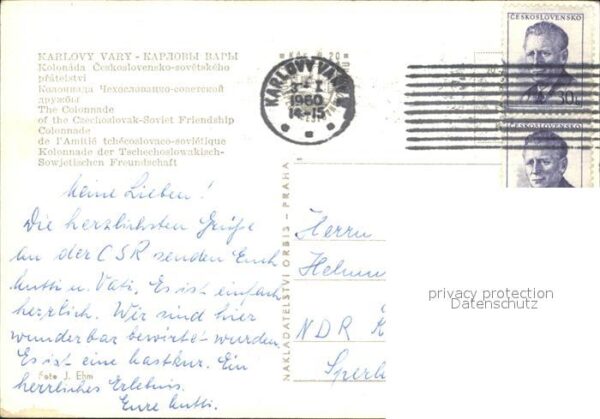 KARLOVY VARY - КАРЛОВЫ ВАРЫ
Kolonáda Československo-sovětského
přátelství
Колоннада Чехословацко-советской
дружбы
The Colonnade
of the Czechoslovak-Soviet Friendship
Colonnade
de l'Amitié tchécoslovaco-soviétique
Kolonnade der Tschechoslowakisch-
Sowjetischen Freundschaft
Meine Lieben!
Die herzlichsten Grüße
an der CSR senden Euch
Mutti u. Vati. Es ist einfach
herzlich. Wir sind hier
wunderbar bewirtet wurden.
Es ist eine Ein
Foto J. Ehm
herrliches Erlebnis.
Eure Mutti.
NAKLADATELSTVÍ ORBIS - PRAHA
KARLOVY VARY
1960
14-15
ČESKOSLOVENSKO
30h
ČESKOSLOVENSKO
Herrn
Helmu
NDR K
Sperl
privacy protection
Datenschutz